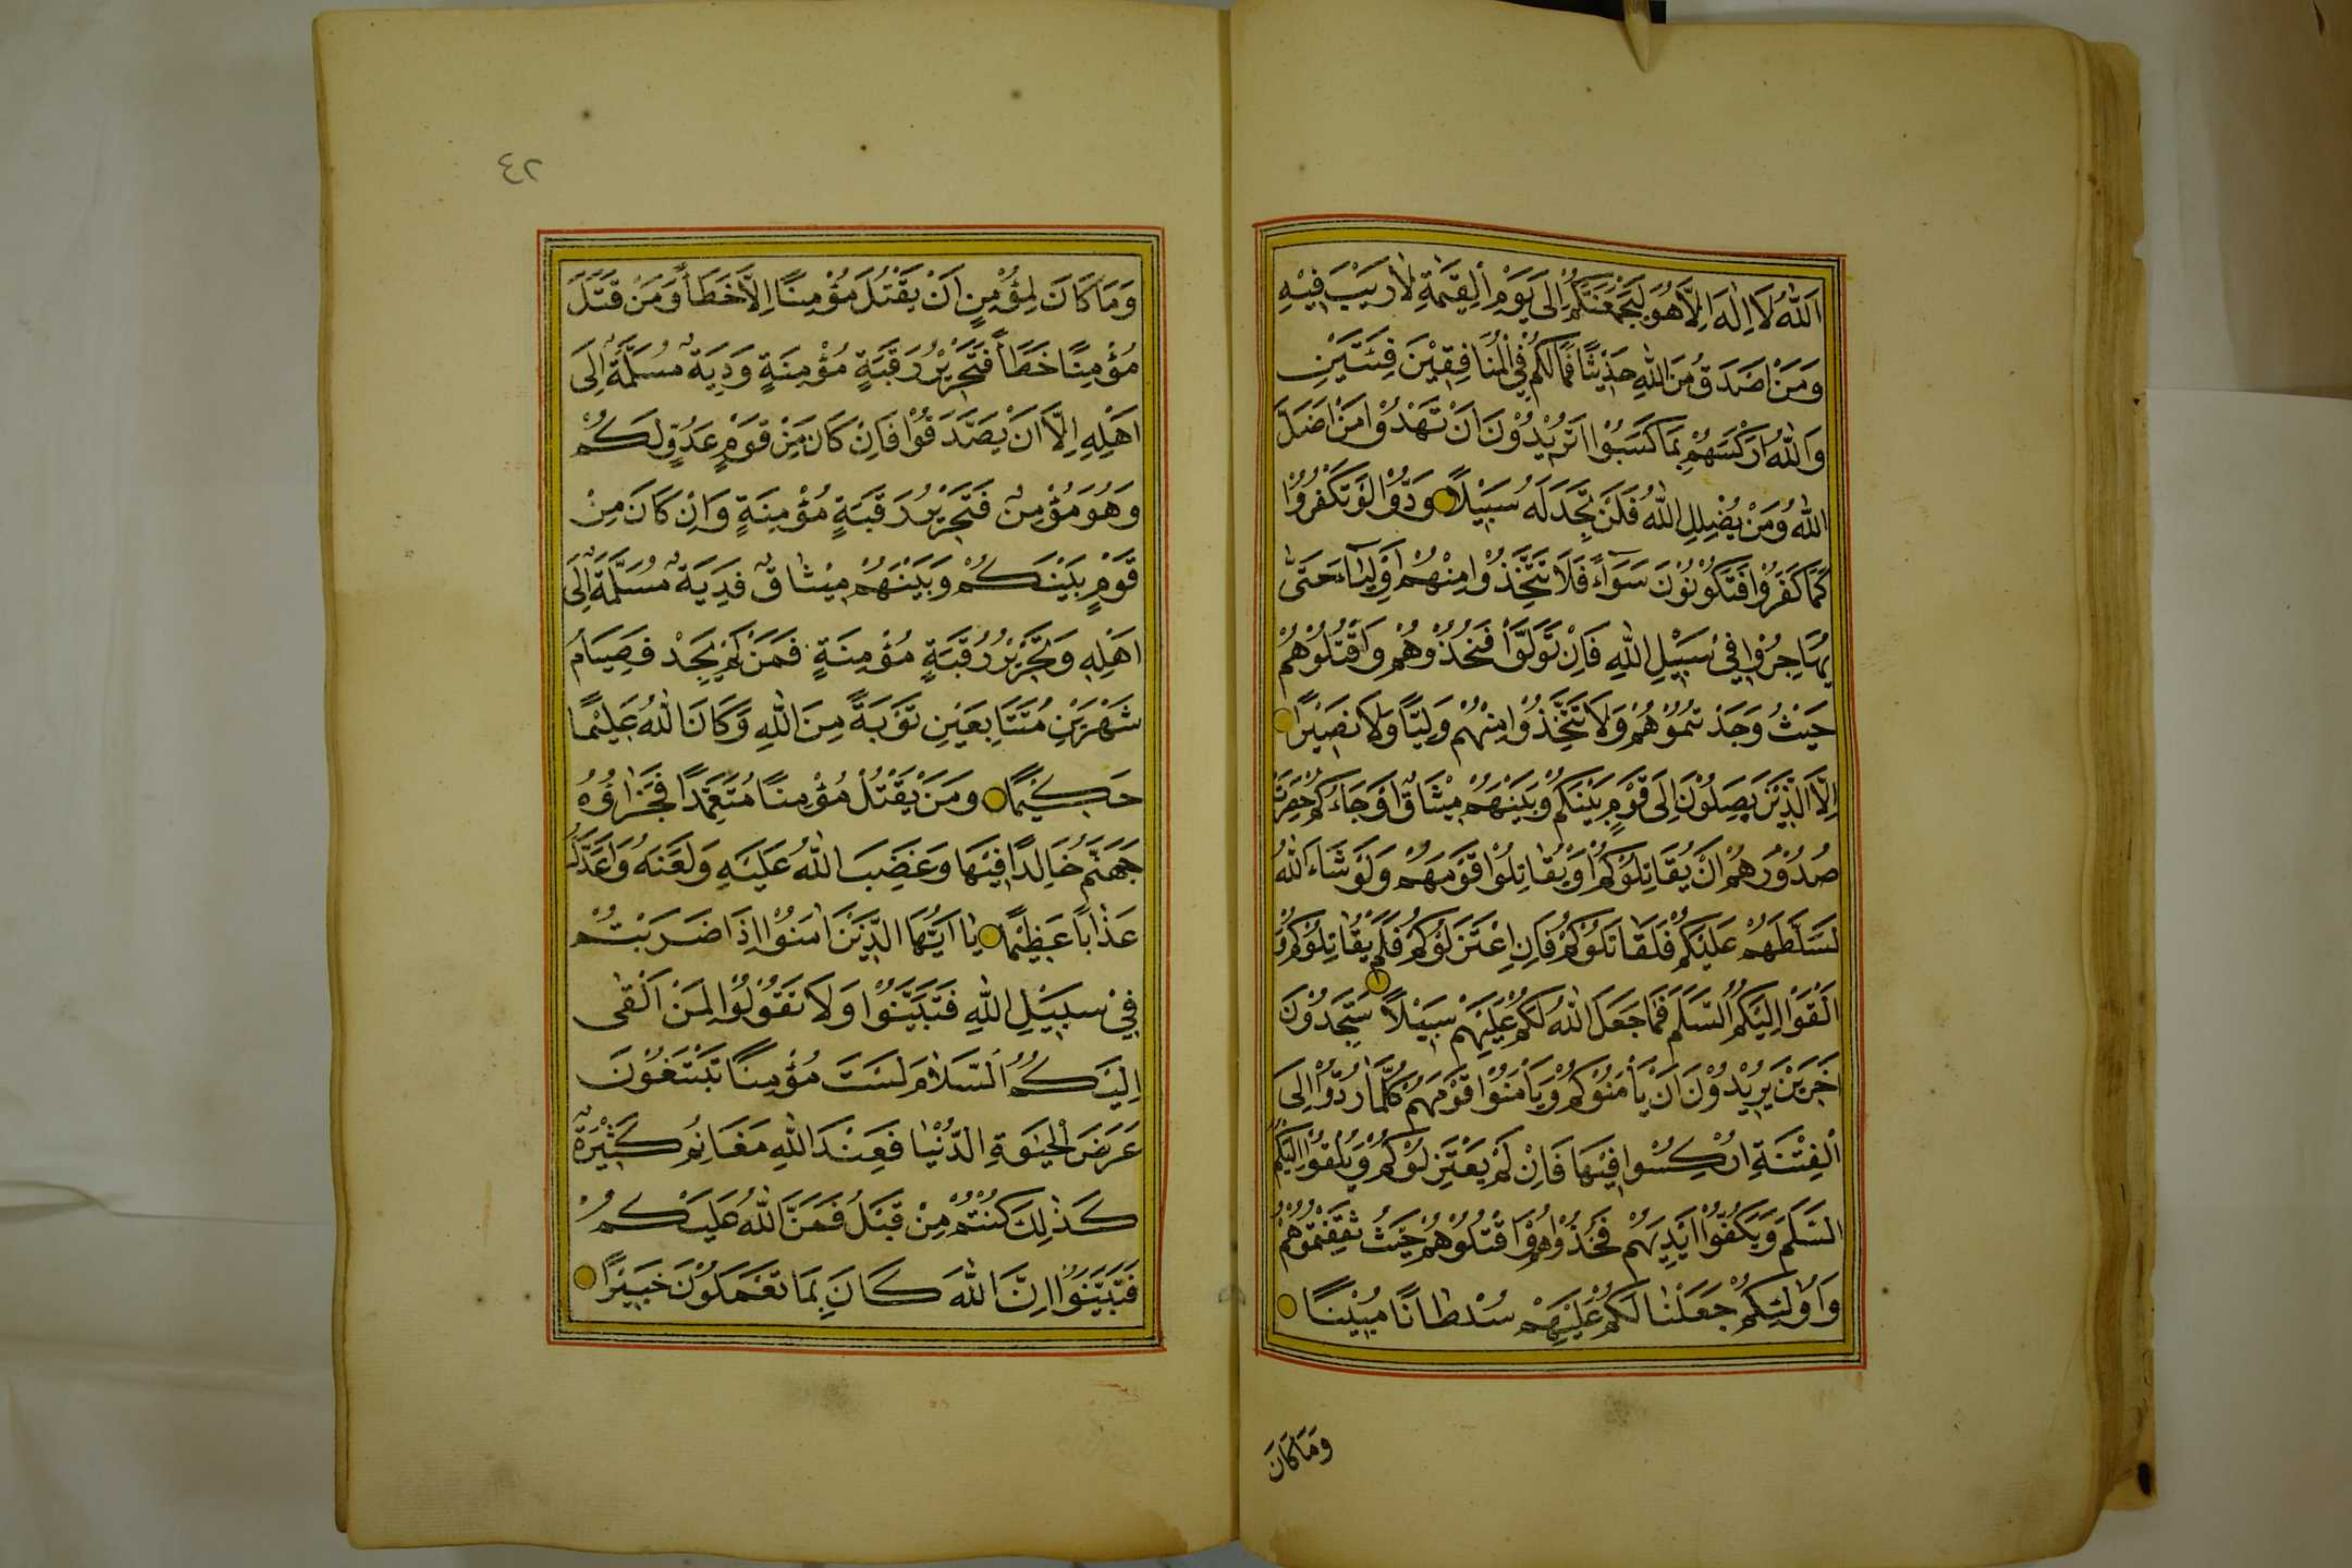 اَللّٰهُ لَا اِلٰهَ اِلَّا هُوَ لَيَجْمَعَنَّكُمْ اِلٰى يَوْمِ الْقِيٰمَةِ لَا رَيْبَ فِيْهِ
وَمَنْ اَصْدَقُ مِنَ اللّٰهِ حَدِيْثًا فَمَا لَكُمْ فِي الْمُنَافِقِيْنَ فِئَتَيْنِ
وَاللّٰهُ اَرْكَسَهُمْ بِمَا كَسَبُوْا اَتُرِيْدُوْنَ اَنْ تَهْدُوْا مَنْ اَضَلَّ
اللّٰهُ وَمَنْ يُضْلِلِ اللّٰهُ فَلَنْ تَجِدَ لَهُ سَبِيْلًا وَدُّوْا لَوْ تَكْفُرُوْا
كَمَا كَفَرُوْا فَتَكُوْنُوْنَ سَوَاءً فَلَا تَتَّخِذُوْا مِنْهُمْ اَوْلِيَاءَ حَتّٰى
يُهَاجِرُوْا فِيْ سَبِيْلِ اللّٰهِ فَاِنْ تَوَلَّوْا فَخُذُوْهُمْ وَاقْتُلُوْهُمْ
حَيْثُ وَجَدْتُمُوْهُمْ وَلَا تَتَّخِذُوْا مِنْهُمْ وَلِيًّا وَلَا نَصِيْرًا
اِلَّا الَّذِيْنَ يَصِلُوْنَ اِلٰى قَوْمٍ بَيْنَكُمْ وَبَيْنَهُمْ مِيْثَاقٌ اَوْ جَاءُكُمْ حَصِرَتْ
صُدُوْرُهُمْ اَنْ يُقَاتِلُوْكُمْ اَوْ يُقَاتِلُوْا قَوْمَهُمْ وَلَوْ شَاءَ اللّٰهُ
لَسَلَّطَهُمْ عَلَيْكُمْ فَلَقَاتَلُوْكُمْ فَاِنِ اعْتَزَلُوْكُمْ فَلَمْ يُقَاتِلُوْكُمْ وَ
اَلْقَوْا اِلَيْكُمُ السَّلَمَ فَمَا جَعَلَ اللّٰهُ لَكُمْ عَلَيْهِمْ سَبِيْلًا سَتَجِدُوْنَ
اٰخَرِيْنَ يُرِيْدُوْنَ اَنْ يَأْمَنُوْكُمْ وَيَأْمَنُوْا قَوْمَهُمْ كُلَّمَا رُدُّوْا اِلَى
الْفِتْنَةِ اُرْكِسُوْا فِيْهَا فَاِنْ لَمْ يَعْتَزِلُوْكُمْ وَيُلْقُوْا اِلَيْكُمُ
السَّلَمَ وَيَكُفُّوْا اَيْدِيَهُمْ فَخُذُوْهُمْ وَاقْتُلُوْهُمْ حَيْثُ ثَقِفْتُمُوْهُمْ
وَاُولٰئِكُمْ جَعَلْنَا لَكُمْ عَلَيْهِمْ سُلْطَانًا مُبِيْنًا
وَمَا كَانَ
٤٢
وَمَا كَانَ لِمُؤْمِنٍ اَنْ يَقْتُلَ مُؤْمِنًا اِلَّا خَطَأً وَمَنْ قَتَلَ
مُؤْمِنًا خَطَأً فَتَحْرِيْرُ رَقَبَةٍ مُؤْمِنَةٍ وَدِيَةٌ مُسَلَّمَةٌ اِلٰى
اَهْلِهِ اِلَّا اَنْ يَصَّدَّقُوْا فَاِنْ كَانَ مِنْ قَوْمٍ عَدُوٍّ لَكُمْ
وَهُوَ مُؤْمِنٌ فَتَحْرِيْرُ رَقَبَةٍ مُؤْمِنَةٍ وَاِنْ كَانَ مِنْ
قَوْمٍ بَيْنَكُمْ وَبَيْنَهُمْ مِيْثَاقٌ فَدِيَةٌ مُسَلَّمَةٌ اِلٰى
اَهْلِهِ وَتَحْرِيْرُ رَقَبَةٍ مُؤْمِنَةٍ فَمَنْ لَمْ يَجِدْ فَصِيَامُ
شَهْرَيْنِ مُتَتَابِعَيْنِ تَوْبَةً مِنَ اللّٰهِ وَكَانَ اللّٰهُ عَلِيْمًا
حَكِيْمًا وَمَنْ يَقْتُلْ مُؤْمِنًا مُتَعَمِّدًا فَجَزَاؤُهُ
جَهَنَّمُ خَالِدًا فِيْهَا وَغَضِبَ اللّٰهُ عَلَيْهِ وَلَعَنَهُ وَاَعَدَّ لَهُ
عَذَابًا عَظِيْمًا يَا اَيُّهَا الَّذِيْنَ اٰمَنُوْا اِذَا ضَرَبْتُمْ
فِيْ سَبِيْلِ اللّٰهِ فَتَبَيَّنُوْا وَلَا تَقُوْلُوْا لِمَنْ اَلْقٰى
اِلَيْكُمُ السَّلَامَ لَسْتَ مُؤْمِنًا تَبْتَغُوْنَ
عَرَضَ الْحَيٰوةِ الدُّنْيَا فَعِنْدَ اللّٰهِ مَغَانِمُ كَثِيْرَةٌ
كَذٰلِكَ كُنْتُمْ مِنْ قَبْلُ فَمَنَّ اللّٰهُ عَلَيْكُمْ
فَتَبَيَّنُوْا اِنَّ اللّٰهَ كَانَ بِمَا تَعْمَلُوْنَ خَبِيْرًا